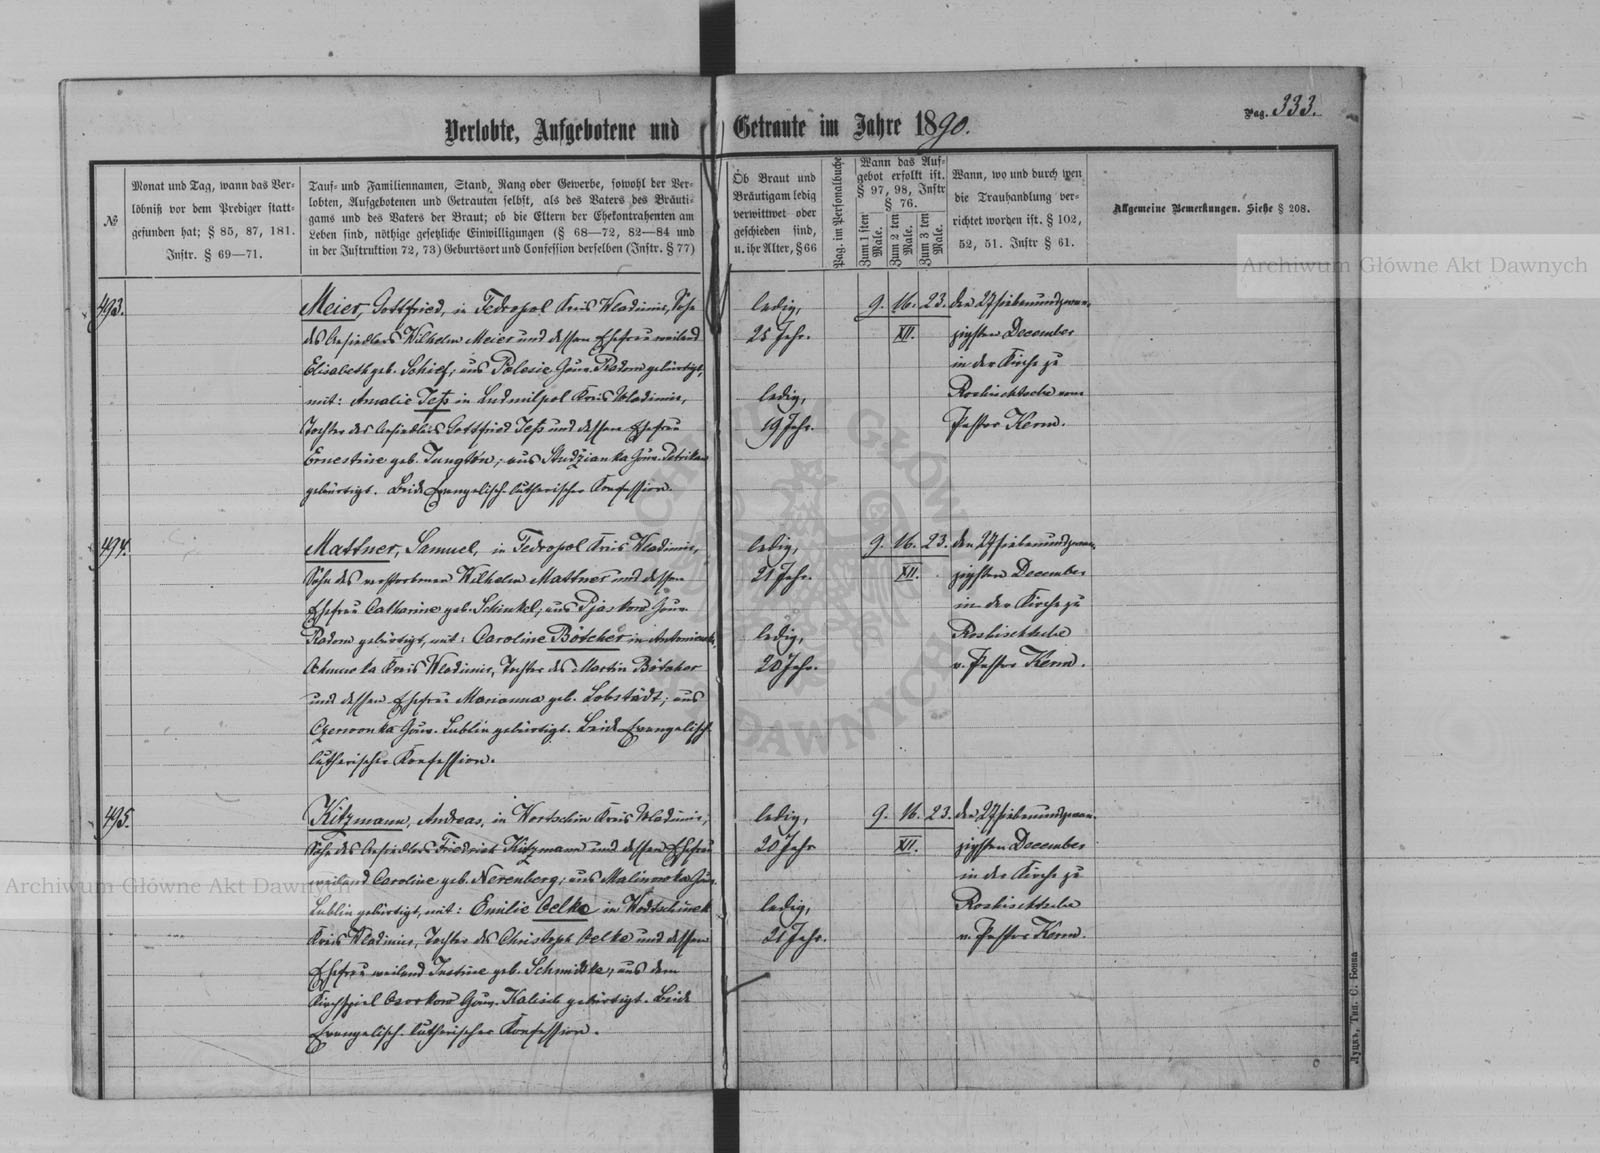 Pag. 333.
Verlobte, Aufgebotene und Getraute im Jahre 1890.
№
Monat und Tag, wann das Ver-
löbniß vor dem Prediger statt-
gefunden hat; § 85, 87, 181.
Instr. § 69—71.
Tauf- und Familiennamen, Stand, Rang oder Gewerbe, sowohl der Ver-
lobten, Aufgebotenen und Getrauten selbst, als des Vaters des Bräuti-
gams und des Vaters der Braut; ob die Eltern der Ehekontrahenten am
Leben sind, nöthige gesetzliche Einwilligungen (§ 68—72, 82—84 und
in der Instruktion 72, 73) Geburtsort und Confession derselben (Instr. § 77)
Ob Braut und
Bräutigam ledig
verwittwet oder
geschieden sind,
u. ihr Alter, § 66
Pag. im Personalbuche
Wann das Auf-
gebot erfolgt ist.
§ 97, 98, Instr
§ 76.
Zum 1 sten
Male.
Zum 2 ten
Male.
Zum 3 ten
Male.
Wann, wo und durch wen
die Trauhandlung ver-
richtet worden ist. § 102,
52, 51. Instr § 61.
Allgemeine Bemerkungen. Siehe § 208.
493.
Meier, Gottfried, in Fedropol Kreis Wladimir, Sohn
des Ansiedlers Wilhelm Meier und dessen Ehefrau weiland
Elisabeth geb. Schief; aus Polesie Gouv. Radom gebürtigt,
mit: Amalie Jeß in Ludmilpol Kreis Wladimir,
Tochter des Ansiedlers Gottfried Jeß und dessen Ehefrau
Ernestine geb. Jungton; aus Studzianka Gouv. Petrikau
gebürtigt. Beide Evangelisch-lutherischer Konfession.
ledig,
25 Jahr.
ledig,
19 Jahr.
9. 16. 23.
XII.
den 27 siebenundzwan-
zigsten December
in der Kirche zu
Roshischtsche vom
Pastor Kerm.
494.
Mattner, Samuel, in Fedropol Kreis Wladimir,
Sohn des verstorbenen Wilhelm Mattner und dessen
Ehefrau Catharine geb. Schinkel; aus Pjaskow Gouv.
Radom gebürtigt, mit: Caroline Bötcher in
Kreis Wladimir, Tochter des Martin Bötcher
und dessen Ehefrau Marianna geb. Lobstädt; aus
Czerwonka Gouv. Lublin gebürtigt. Beide Evangelisch-
lutherischer Konfession.
ledig,
21 Jahr.
ledig,
20 Jahr.
9. 16. 23.
XII.
den 27 siebenundzwan-
zigsten December
in der Kirche zu
Roshischtsche
v. Pastor Kerm.
495.
Kitzmann, Andreas, in Kreis Wladimir,
Sohn des Ansiedlers Friedrich Kitzmann und dessen Ehefrau
weiland Caroline geb. Nerenberg; aus Malinowka Gouv.
Lublin gebürtigt, mit: Emilie Oelke in
Kreis Wladimir, Tochter des Christoph Oelke und dessen
Ehefrau weiland Justine geb. Schmidtke; aus dem
Kirchspiel Osorkow Gouv. Kalisch gebürtigt. Beide
Evangelisch-lutherischer Konfession.
ledig,
20 Jahr
ledig,
21 Jahr.
9. 16. 23.
XII.
den 27 siebenundzwan-
zigsten December
in der Kirche zu
Roshischtsche
v. Pastor Kerm.
Луцкъ, Тип. С. Бонка
Archiwum Główne Akt Dawnych
Archiwum Główne Akt Dawnych